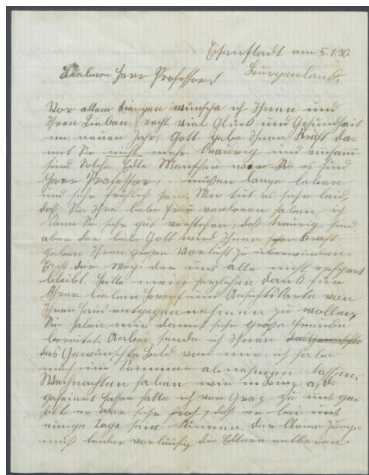 Eisenstadt am 5.1.30.
Burgenland,
Lieber Herr Professor!
Vor allem dingen wünsche ich Ihnen und
Ihren Lieben recht viel Glück und Gesundheit
im neuen Jahr. Gott gebe Ihnen Kraft da-
mit Sie nicht mehr traurig und einsam
sind. Solche edle Menschen wie Sie es sind
Herr Professor, müssen lange leben
und sehr glücklich sein. Mir tut es sehr leid,
daß Sie Ihre liebe Frau verloren haben, ich
kann Sie sehr gut verstehen, daß traurig sind,
aber der liebe Gott wird Ihnen schon Kraft
geben Ihren großen Verlust zu überwinden.
der Weg der uns alle nicht erspart
bleibt. Bitte meinen herzlichen dank für
Ihren lieben und Ansichtskarte von
Ihrem Haus entgegennehmen zu wollen,
Sie haben mir damit sehr große Freude
bereitet. Anbei sende ich Ihnen
das gewünschte Bild von mir, ich habe
mich im Sommer abnehmen lassen.
Weihnachten haben wir ganz
gefeiert haben hatte ich von Graz
daß er bei uns
einige Tage sein können der kleine Junge
muß leider vorläufig die Eltern entbehren